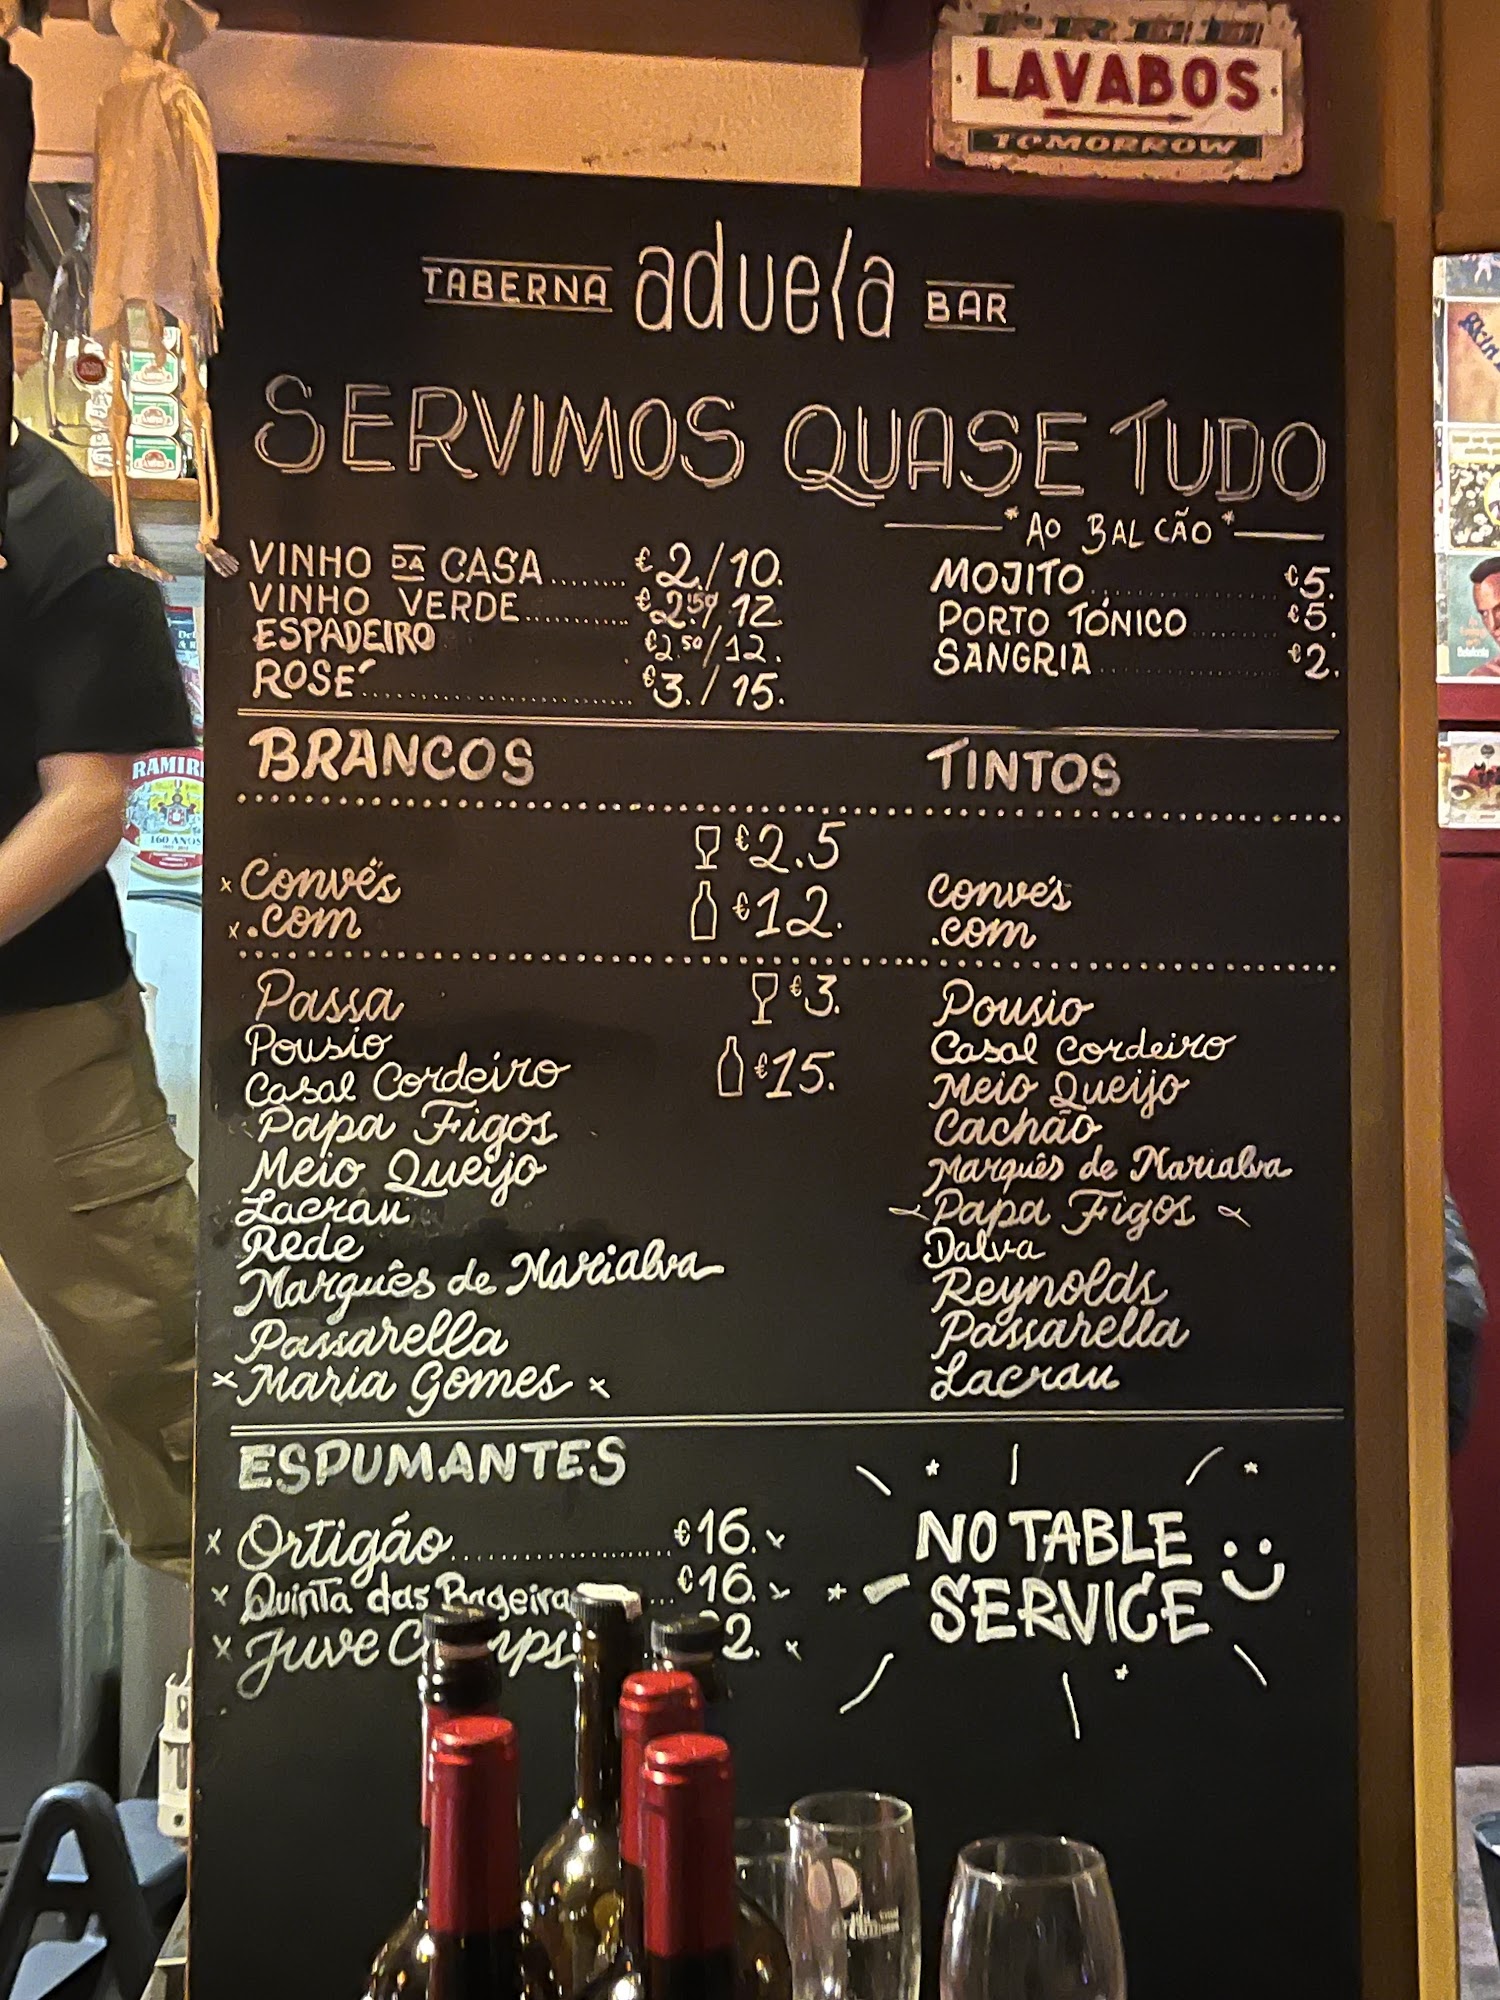 FREE
LAVABOS
TOMORROW
TABERNA aduela BAR
SERVIMOS QUASE TUDO
*AO BALCÃO*
VINHO DA CASA........ €2./10.
VINHO VERDE........... €2.50/12
ESPADEIRO €2.50/12.
ROSÉ........................ €3./15.
MOJITO............ €5.
PORTO TÓNICO........ €5.
SANGRIA............ €2.
BRANCOS
€2.5
x Convés
€12.
x .com
Passa €3.
Pousio
Casal Cordeiro €15.
Papa Figos
Meio Queijo
Lacrau
Rede
Marquês de Marialva
Passarella
x Maria Gomes x
TINTOS
Convés
.com
Pousio
Casal Cordeiro
Meio Queijo
Cachão
Marquês de Marialva
Papa Figos
Dalva
Reynolds
Passarella
Lacrau
ESPUMANTES
x Ortigão...................... €16. x
x Quinta das Bageira ... €16. x
x Juve 2. x
NO TABLE
SERVICE
RAMIR
160 ANOS